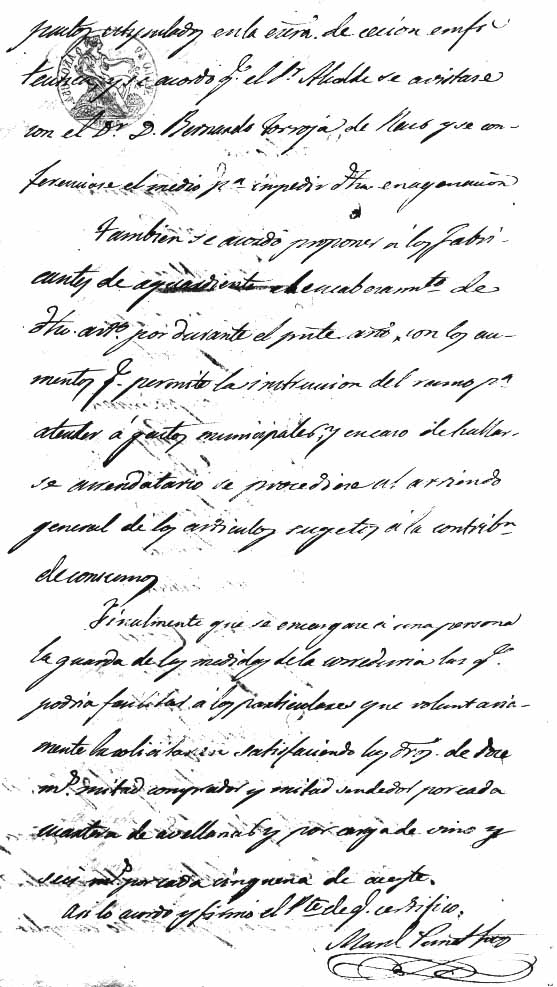 pactos estipulados en la escra. de cecion emfi
teutica, y se acordó qe. el Sr. Alcalde se avistase
con el Dr. D. Bernardo Torroja, de Reus y se con-
ferenciase el medio pa. impedir dha. enagenacion
Tambien se acordó proponer á los fabri-
cantes de aguardiente el encabezamto. de
dho. arto. por durante el pnte. año, con los au-
mentos qe. permite la instruccion del ramo pa.
atender á gastos municipales; y en caso de hallar-
se arrendatario se procediese al arriendo
general de los articulos sugetos á la contribn.
de consumos
Finalmente que se encargare á una persona
la guarda de las medidas de la correduria las qe.
podria facilitar á los particulares que voluntaria-
mente la solicitaren satisfaciendo los dros. de doce
ms. mitad comprador y mitad vendedor por cada
cuartera de avellanas y por carga de vino y
seis ms. por cada cinquena de aceyte.
Asi lo acordó y firmó el Pte. de q. certifico.
Manl.